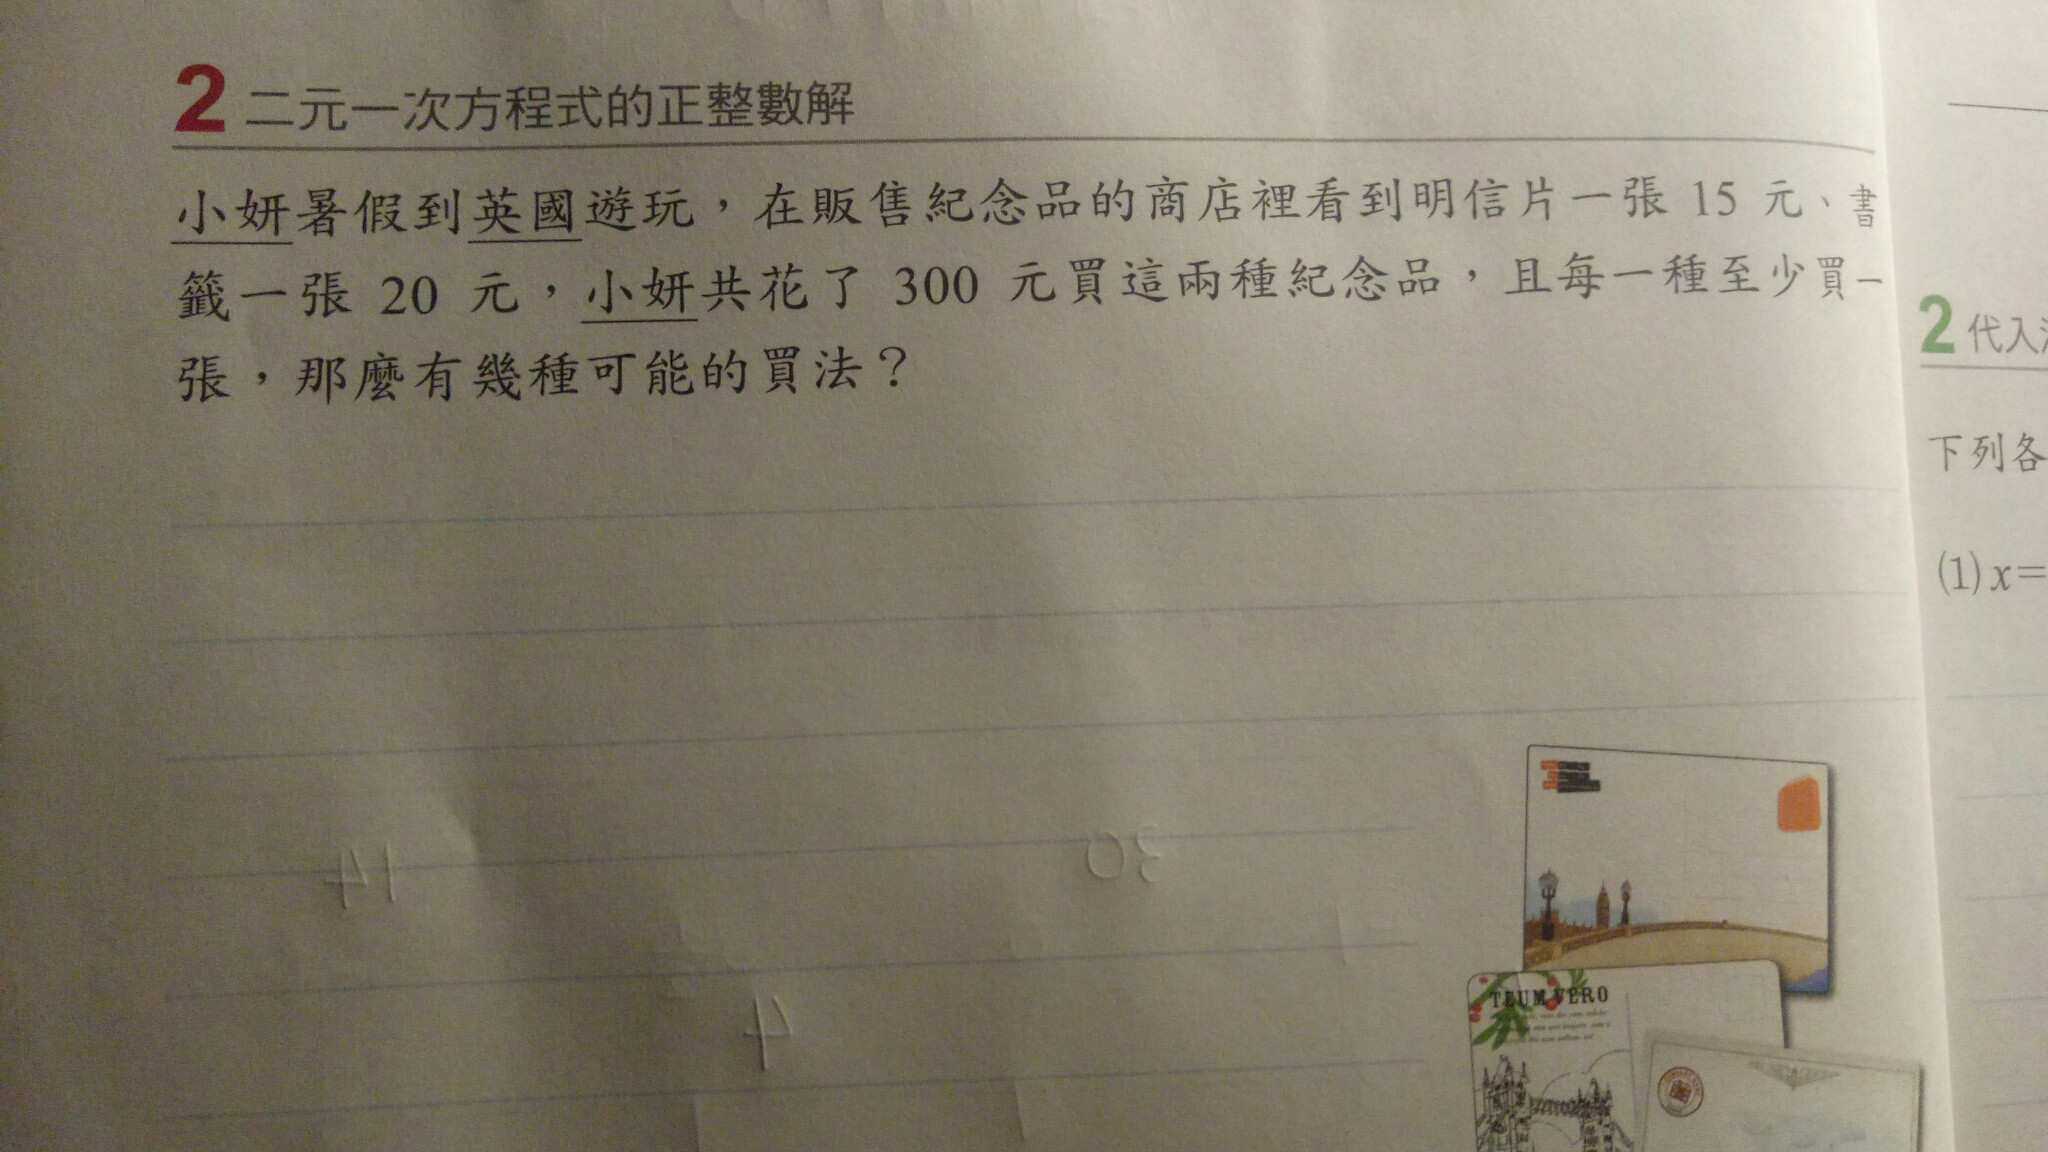 2 二元一次方程式的正整數解
小妍暑假到英國遊玩，在販售紀念品的商店裡看到明信片一張 15 元、書
籤一張 20 元，小妍共花了 300 元買這兩種紀念品，且每一種至少買一
張，那麼有幾種可能的買法？
14
30
4
TEUM VERO
2 代入
下列各
(1) x=